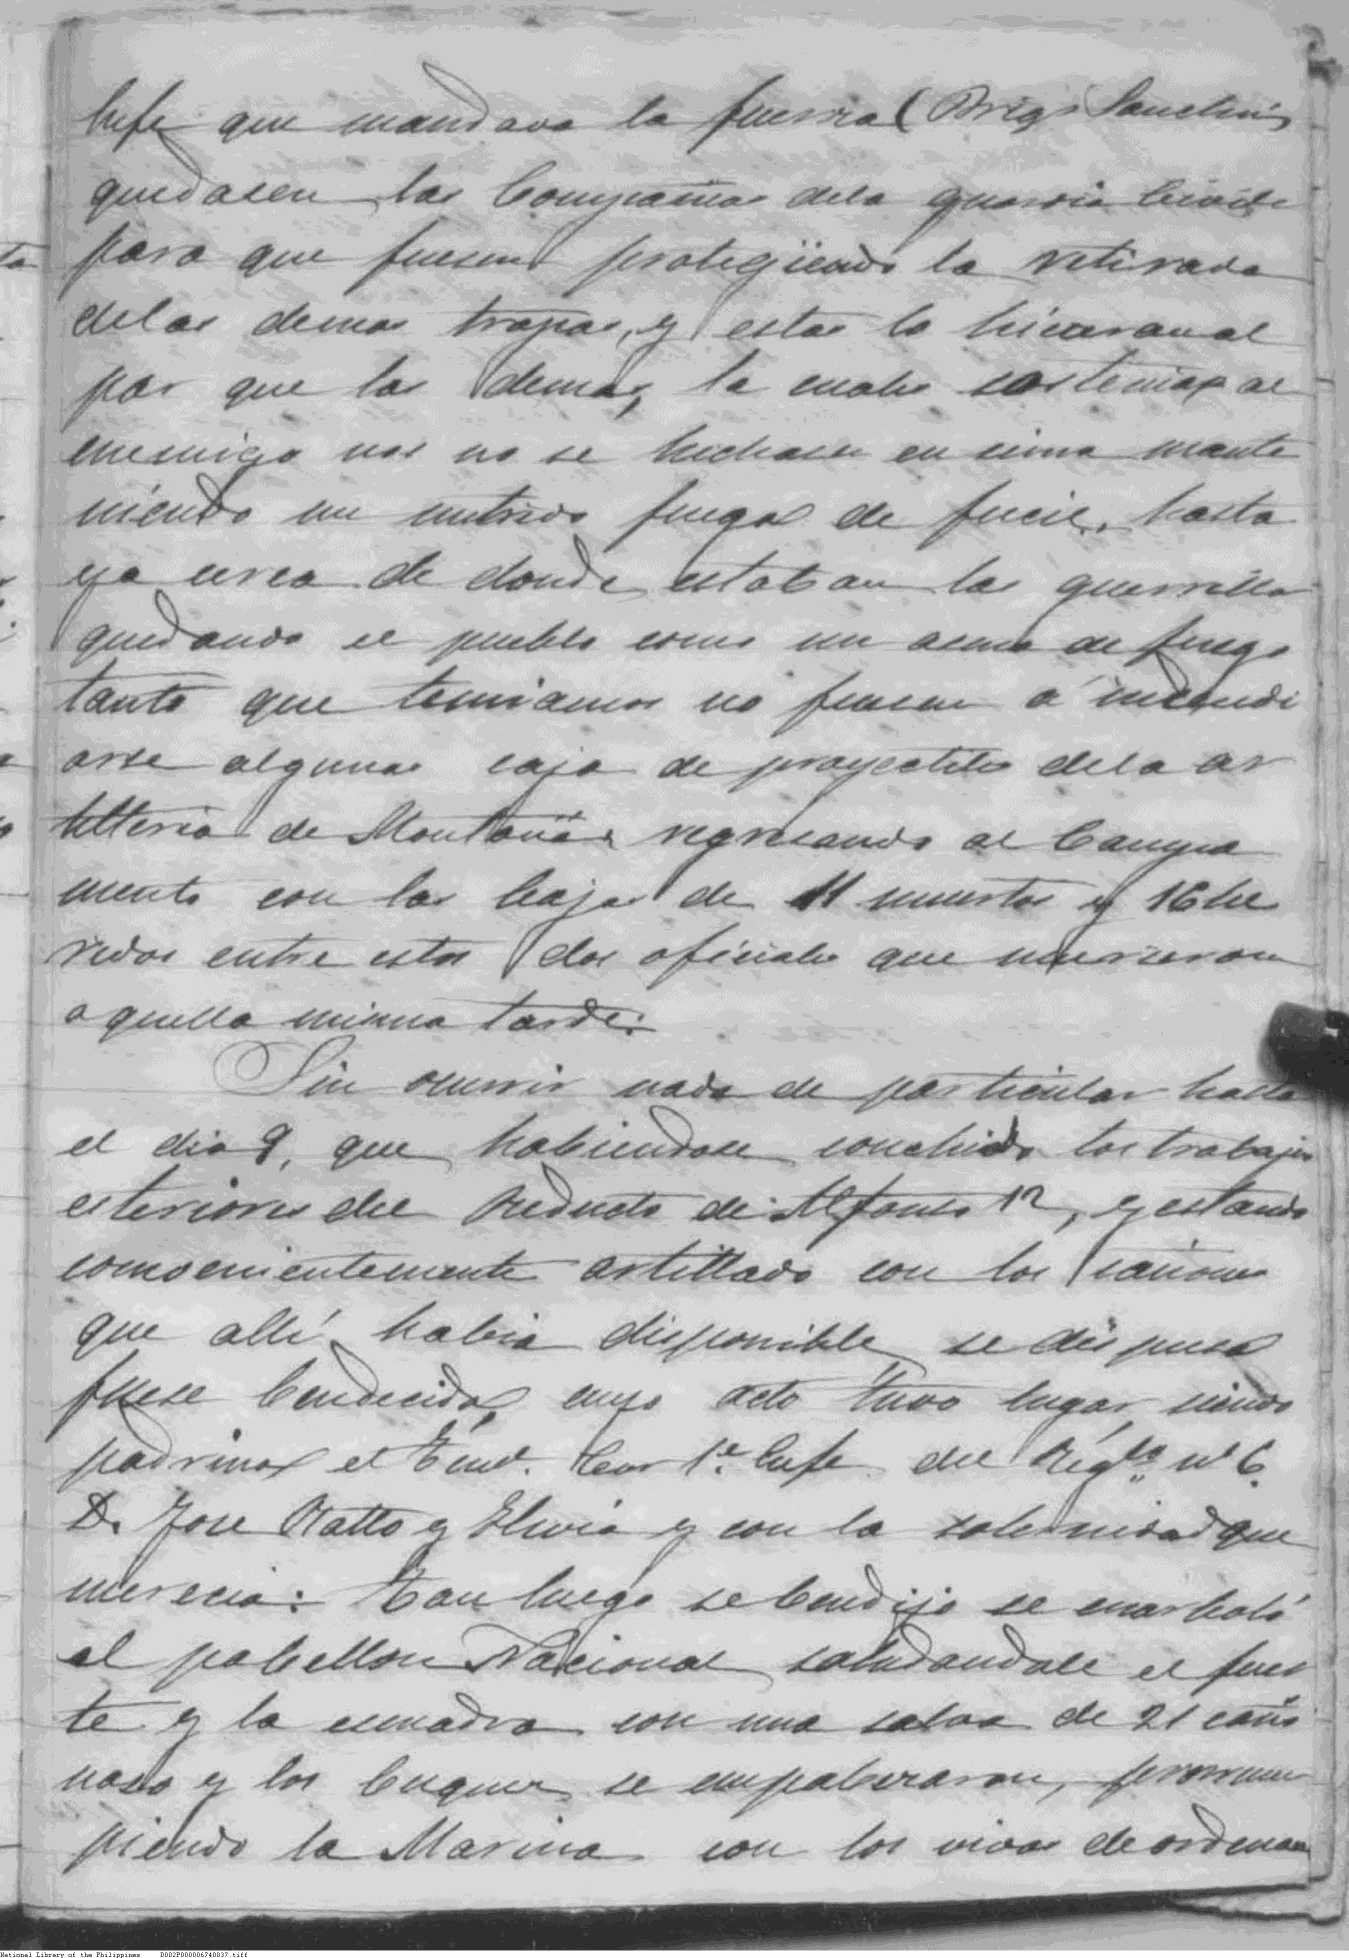 Gefe que mandava la fuerza (Brigr Sanchiz
quedasen las Compañias dela guardia Civile
para que fuesen protegüendo la retirada
delas demas tropas, y estas lo hicieron al
par que las demas, la cuales sostenian al
enemigo nos no se hechasen en sima mante
niendo un nutrido fuego de fucil, hasta
ya cerca de donde estaban las guerrilla
quedando el pueblo como un acua de fuego
tanto que temiamos no fuesen á incendi
arse algunas caja de proyectiles dela ar
tilleria de Montaña regresando al Campa
mento con las bajas de 11 muertos y 16 he
ridos entre estos dos oficiales que murieron
aquella misma tarde:
Sin ocurrir nada de particular hasta
el dia 9, que habiendose concluido los trabajos
esteriores del Reducto de Alfonso 12, y estando
convenientemente artillado con los cañones
que allí habia disponible, se dispuso
fuese bendecido, cuyo acto tuvo lugar, siendo
padrino el Tent. Cor 1.r Gefe del Reg.to nº 6
D. Jose Ratto y y con la solemnidad que
merecia: Tan luego se bendijo se enarboló
el pabellon Nacional saludandole el fuer
te y la escuadra con una salva de 21 caño
nazo y los buques se empabezaron, prorrum
piendo la Marina con los vivas de ordenan